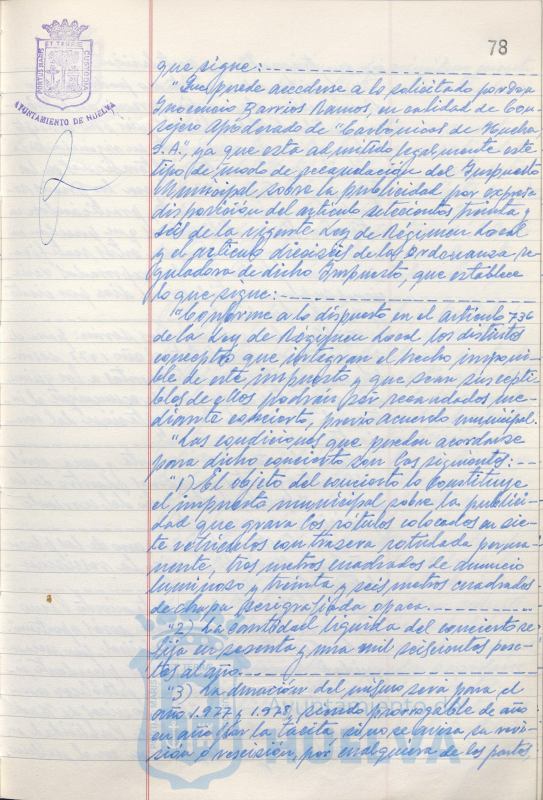 78
AYUNTAMIENTO DE HUELVA
que sigue:
"Que puede accederse a lo solicitado por Don
Inocencio Barrios Ramos, en calidad de Con-
sejero Apoderado de "Carbónicas de Huelva
S.A.", ya que esta admitido legalmente este
tipo de modo de recaudación del Impuesto
Municipal sobre la publicidad por expresa
disposición del artículo setecientos treinta y
séis de la vigente Ley de Régimen Local
y el artículo dieciséis de la Ordenanza re-
guladora de dicho Impuesto, que establece
lo que sigue:
"Conforme a lo dispuesto en el artículo 736
de la Ley de Régimen Local los distintos
conceptos que integran el hecho imponi-
ble de este impuesto y que sean suscepti-
bles de ellos podrán ser recaudados me-
diante concierto, previo acuerdo municipal.
"Las condiciones que pueden acordarse
para dicho concierto son las siguientes:
"1) El objeto del concierto lo constituye
el impuesto municipal sobre la publici-
dad que grava los rótulos colocados en sie-
te vehículos con trasera rotulada perma-
nente, tres metros cuadrados de anuncio
luminoso y treinta y seis metros cuadrados
de chapa serigrafiada opaca.
"2) La cantidad líquida del concierto se
fija en sesenta y una mil seiscientas pese-
tas al año.
"3) La duración del mismo será para el
año 1.977 y 1.978, siendo prorrogable de año
en año por la tácita, si no se avisa su revi-
sión o rescisión, por cualquiera de las partes,
Ayuntamiento
HUELVA